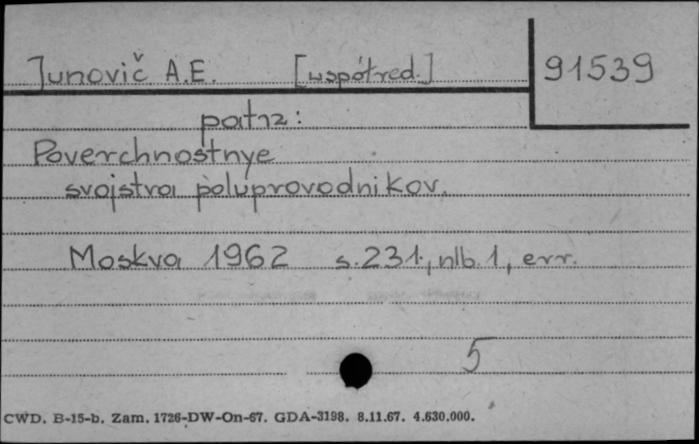 Junovič A.E. [współred.] 91539
patrz:
Poverchnostnye
svojstva poluprovodnikov.
Moskva 1962 s.231, nlb.1, err.
5
CWD. B-15-b. Zam. 1726-DW-On-67. GDA-3198. 8.11.67. 4.630.000.